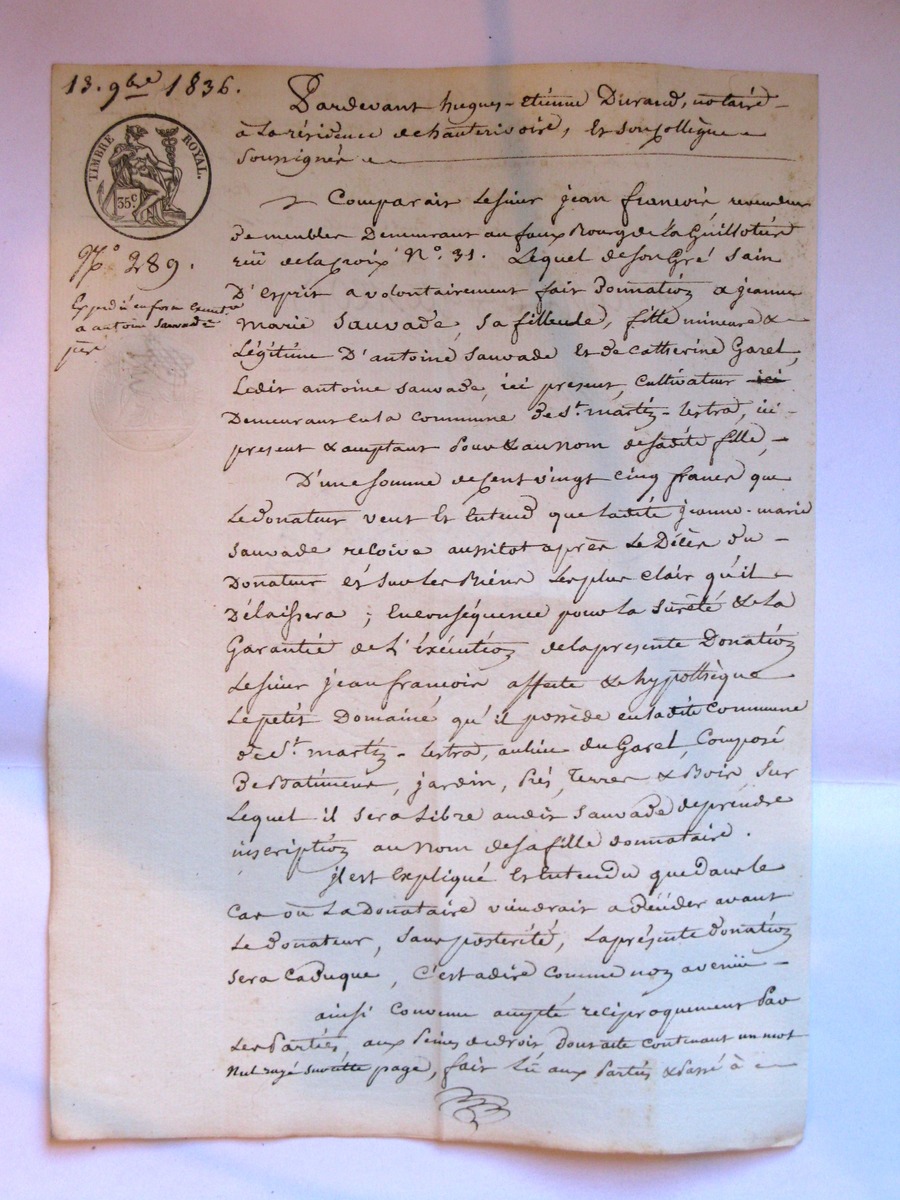 13. 9bre 1836.
Pardevant hugues-etiénne Duraud, notairé
à La résidence de chanterivoire, Et son collègue
Soussignés
TIMBRE ROYAL.
35c
No 289.
Expedié en forme
a antoine Sauvade
peré
Comparait Le sieur jean francois revendeur
De meubles Demeurant au faux Bourg de la Guillotiére
rüe de la croix No. 31. Lequel de son Gré Sain
D'esprit a volontairement fait Donnation a jeanne
Marie Sauvade, Sa filleule, fille mineure &
Légitime D'antoine Sauvade Et de Catherine Garel,
Ledit antoine Sauvade, ici present, Cultivateur ici
Demeurant En la Commune De St. martin-Lestra, ici
present & acceptant Pour & au nom de sadité fille,
D'une Somme de Cent vingt cinq francs que
Le Donateur veut Et Entend que Ladité jeanne-marie
Sauvade recoive aussitot après Le Décès du
Donateur et Sur les Biens Les plus clair qu'il
Délaissera ; En conséquence pour La Sureté & La
Garantié de L'Exécution de la presente Donation
Le sieur jean francois affecte & hypothèque
Le petit Domainé qu'il possède en ladite Commune
de St. martin-Lestra, au lieu du Garel, Composé
De Batiments, jardin, Prés, Terres & Bois, Sur
Lequel il Sera Libre audit Sauvade de prendre
inscription au nom de sa fille donnataire.
jl est Expliqué Et Entendu que Dans le
Cas où La Donataire viendrait a Décéder avant
Le Donateur, Sans posterité, La présente Donation
Sera Caduque, C'est adire Comme non avenüe
ainsi Convenu accepté reciproquement Par
Les Partiés, aux Peines de droit Dont acte contenant un mot
Nul rayé sur cette page, fait Lü aux Partiés & Passé à